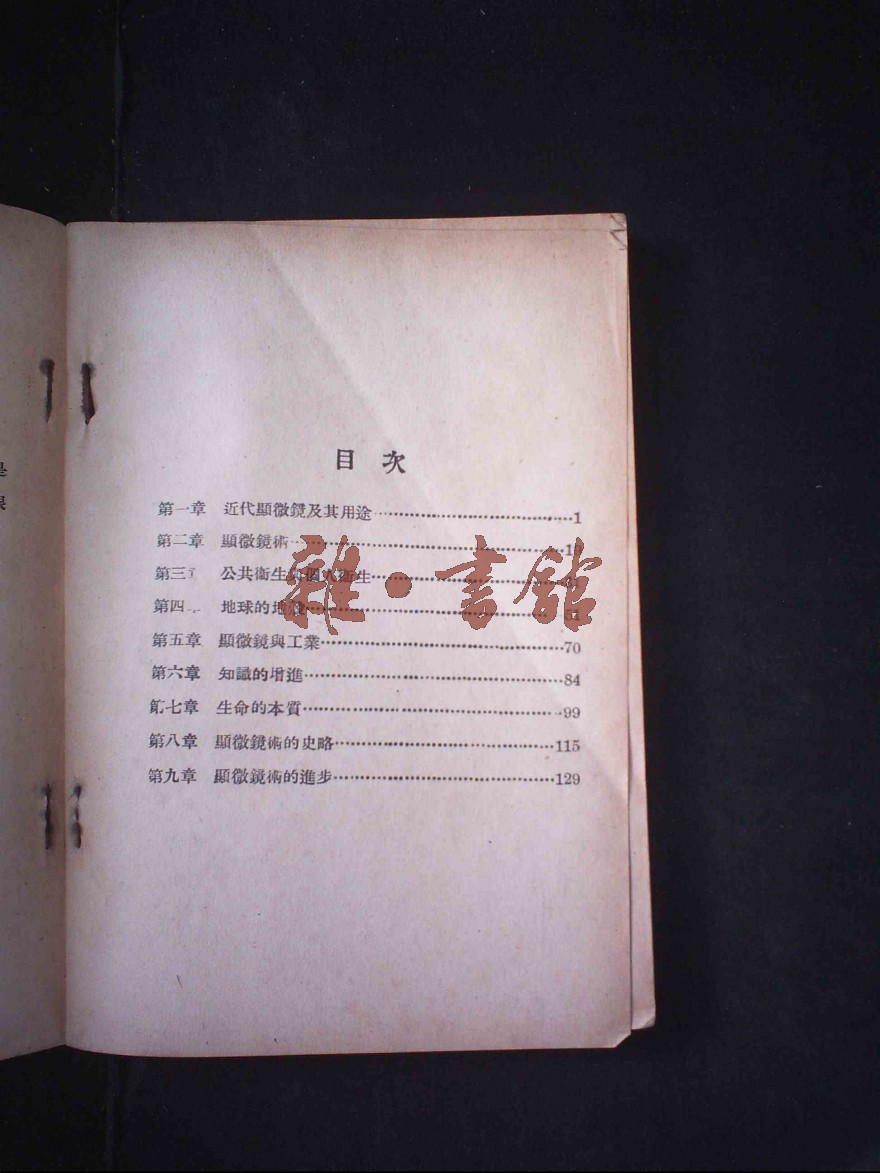 目次
第一章 近代顯微鏡及其用途 1
第二章 顯微鏡術
第三 公共衞生與個人衞生
第四 地球的地殼 51
第五章 顯微鏡與工業 70
第六章 知識的增進 84
第七章 生命的本質 99
第八章 顯微鏡術的史略 115
第九章 顯微鏡術的進步 129
雜·書館